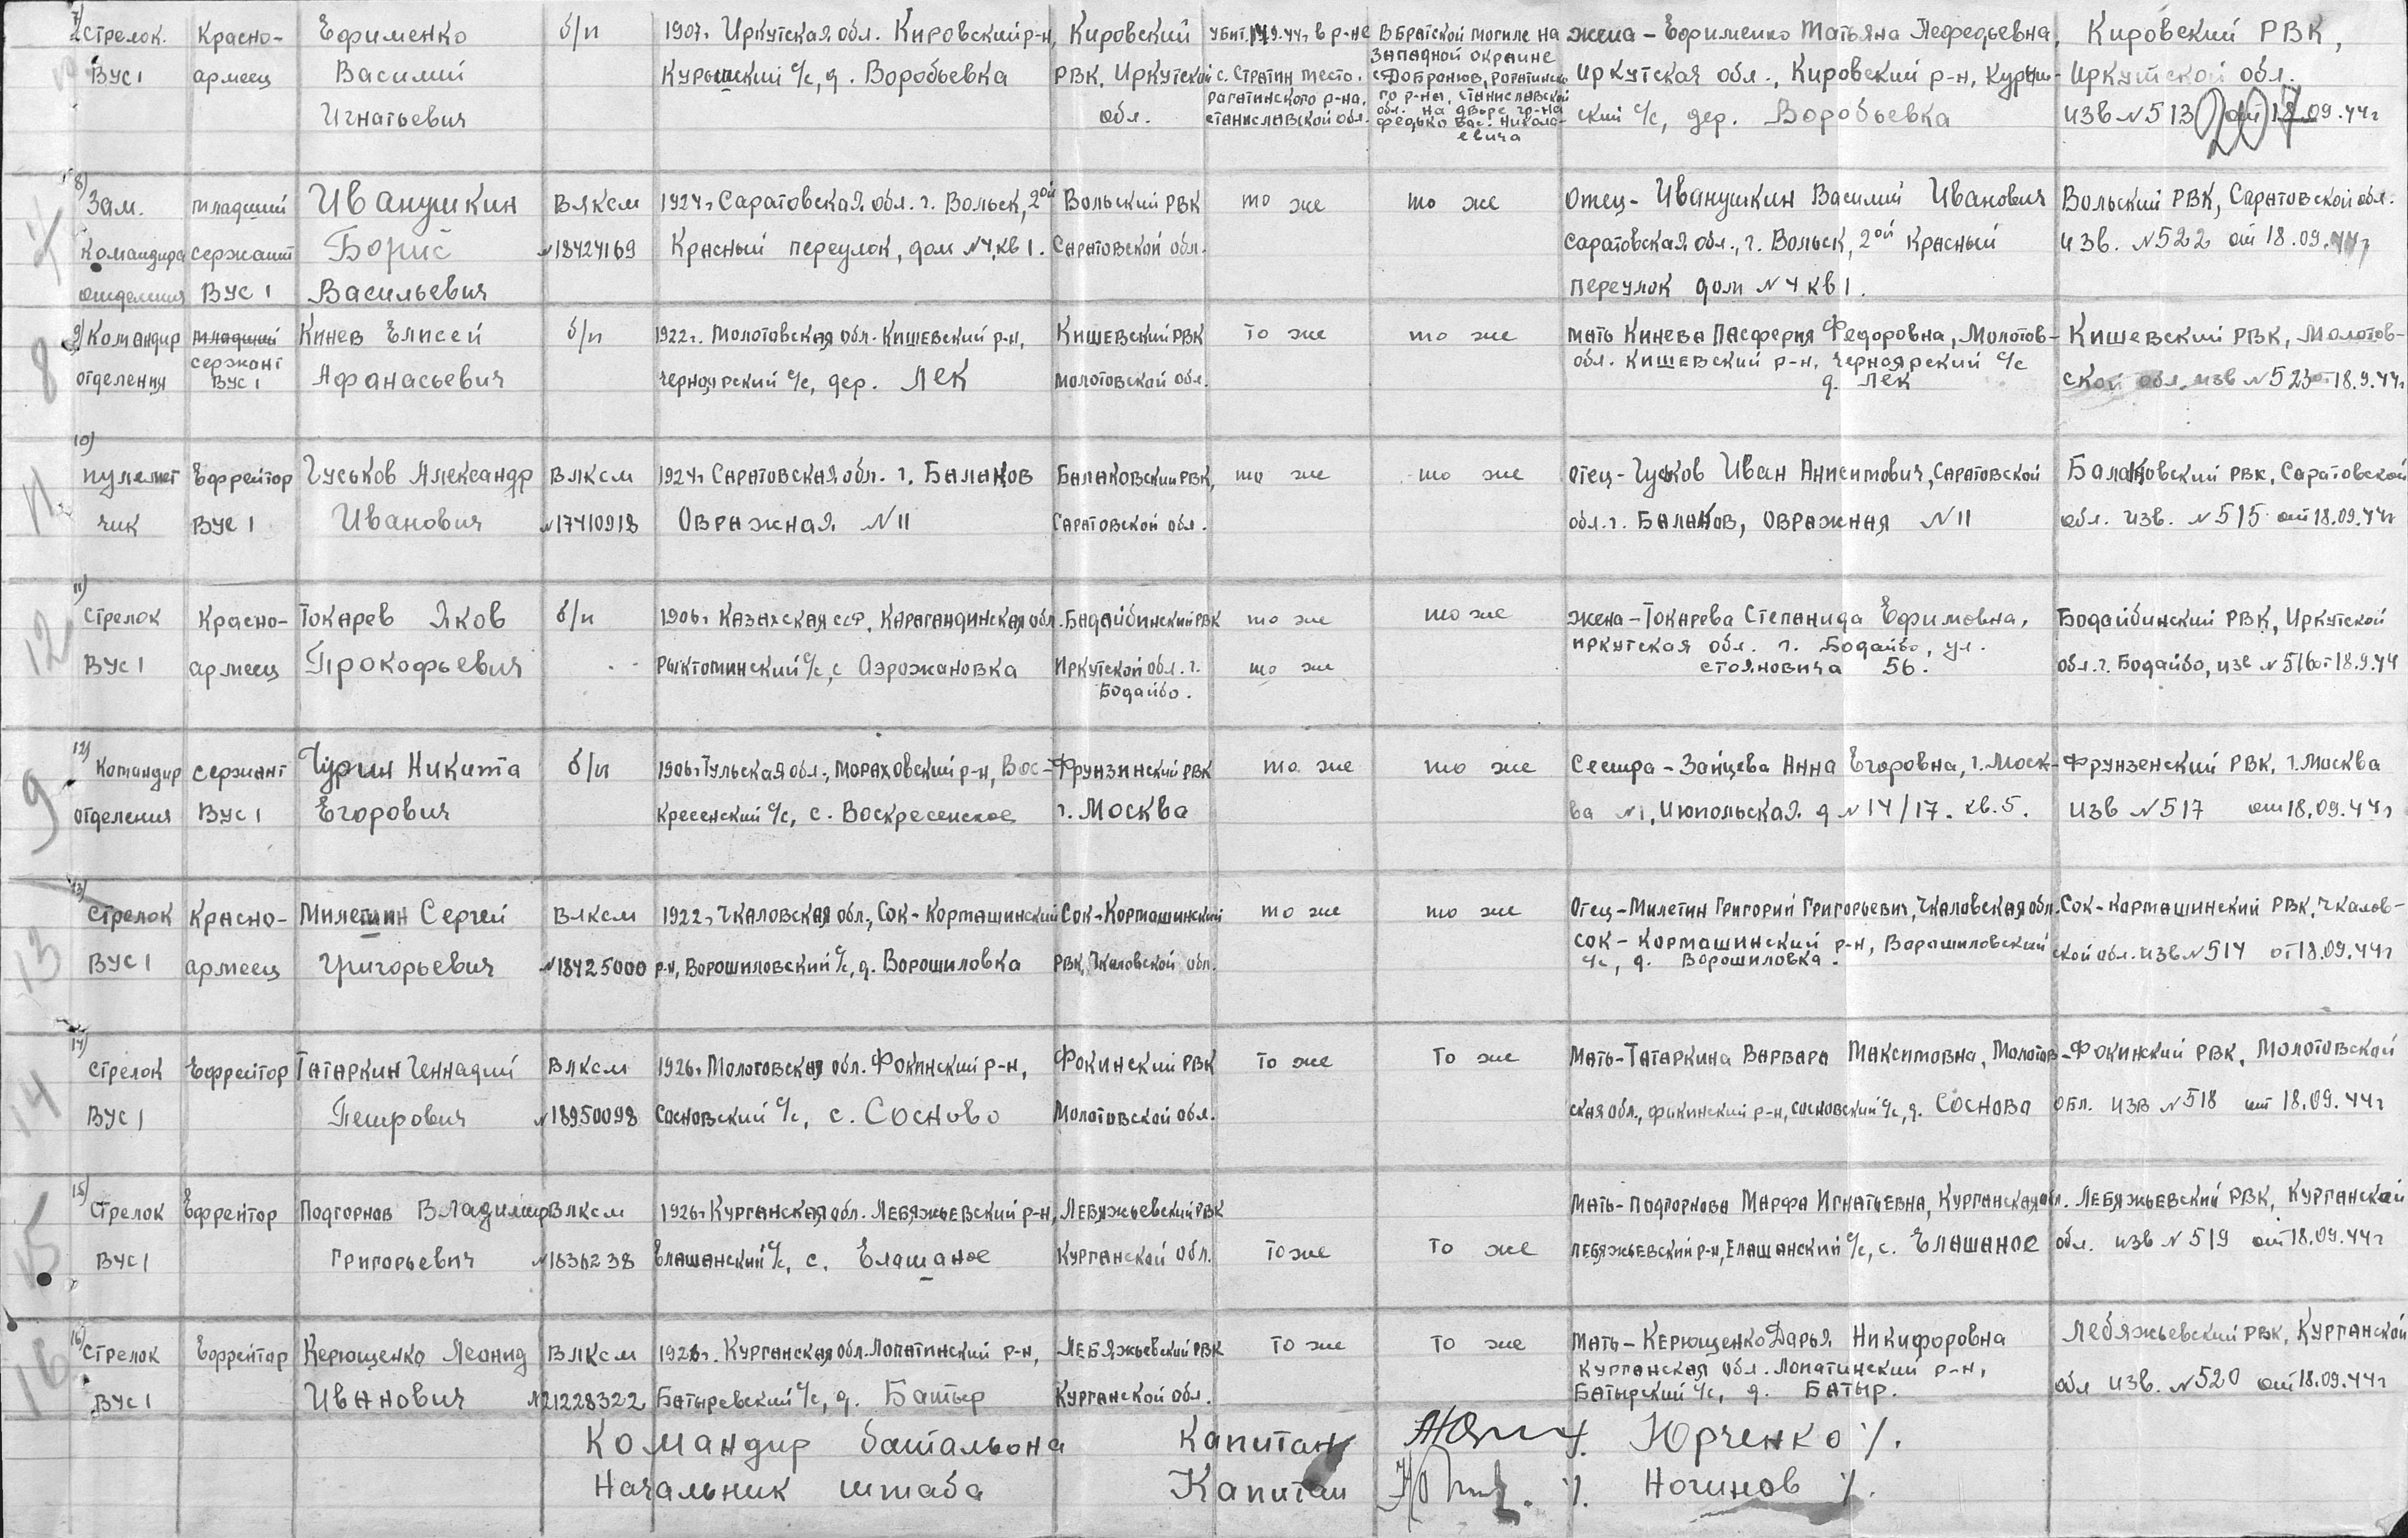 7) Стрелок. Красно- Ефименко б/п 1907г. Иркутская обл. Кировский р-н, Кировский убит 9.44г в р-не В братской могиле на жена - Ефименко Татьяна Нефедьевна, Кировский РВК,
Западной окраине
ВУС 1 армеец Василий Курышский с/с, д. Воробьевка РВК, Иркутской с. Стратин место. Рогатинско Иркутская обл., Кировский р-н, Иркутской обл.
Рагатинского р-на. го р-на, Станиславской
Игнатьевич обл. Станиславской обл. обл. на дворе гр-на ский с/с, дер. Воробьевка изв № 513 от 18.09.44г
Федько Вас. Никола-
евича
8) Зам. младший Иванушкин ВЛКСМ 1924г. Саратовская обл. г. Вольск, 2ой Вольский РВК то же то же Отец - Иванушкин Василий Иванович Вольский РВК, Саратовской обл.
командира сержант Борис №18424169 Красный переулок, дом №4, кв 1. Саратовской обл. Саратовская обл., г. Вольск, 2ой Красный изв. №522 от 18.09.44г
отделения ВУС 1 Васильевич переулок дом №4 кв 1.
9) Командир младший Кинев Елисей б/п 1922г. Молотовская обл. Кишевский р-н, Кишевский РВК то же то же мать Кинева Пасферия Федоровна, Молотов- Кишевский РВК, Молотов-
сержант обл. Кишевский р-н, Черноярский с/с
отделения ВУС 1 Афанасьевич Черноярский с/с, дер. Лек Молотовской обл. д. Лек ской обл. изв №523 от 18.9.44г
10)
пулемет Ефрейтор Гуськов Александр ВЛКСМ 1924г Саратовская обл. г. Балаков Балаковский РВК, то же то же Отец - Гуськов Иван Анисимович, Саратовской Балаковский РВК, Саратовской
чик ВУС 1 Иванович №17410918 Овражная №11 Саратовской обл. обл. г. Балаков, Овражная №11 обл. изв. №515 от 18.09.44г
11)
Стрелок Красно- Токарев Яков б/п 1906г Казахская ССР, Карагандинская обл. Бадайбинский РВК то же то же жена - Токарева Степанида Ефимовна, Бодайбинский РВК, Иркутской
Иркутская обл. г. Бодайбо, ул.
ВУС 1 армеец Прокофьевич Рыктоминский с/с, с Аэрожановка Иркутской обл. г. то же Стояновича 56. обл. г. Бодайбо, изв №516 от 18.9.44
Бодайбо.
12) Командир сержант Чурин Никита б/п 1906г Тульская обл., Мораховский р-н, Вос- Фрунзинский РВК то же то же Сестра - Зайцева Анна Егоровна, г. Моск- Фрунзенский РВК, г. Москва
отделения ВУС 1 Егорович кресенский с/с, с. Воскресенское г. Москва ва №1, Июпольская д №14/17. кв. 5. изв №517 от 18.09.44г
13)
Стрелок Красно- Милетин Сергей ВЛКСМ 1922г. Чкаловская обл., Сок-Кормашинский Сок-Кормашинский то же то же Отец - Милетин Григорий Григорьевич, Чкаловская обл. Сок-Кормашинский РВК, Чкалов-
Сок-Кормашинский р-н, Ворошиловский
ВУС 1 армеец Григорьевич №18425000 р-н, Ворошиловский с/с, д. Ворошиловка РВК, Чкаловской обл. с/с, д. Ворошиловка. ской обл. изв №514 от 18.09.44г
14)
Стрелок Ефрейтор Татаркин Геннадий ВЛКСМ 1926г. Молотовская обл. Фокинский р-н, Фокинский РВК то же то же Мать - Татаркина Варвара Максимовна, Молотов- Фокинский РВК, Молотовской
ВУС 1 Петрович №18950098 Сосновский с/с, с. Сосново Молотовской обл. ская обл., Фокинский р-н, Сосновский с/с, д. Соснова обл. изв №518 от 18.09.44г
15)
Стрелок Ефрейтор Подгорнов Владимир ВЛКСМ 1926г Курганская обл. Лебяжьевский р-н, Лебяжьевский РВК Мать - Подгорнова Марфа Игнатьевна, Курганская обл. Лебяжьевский РВК, Курганской
ВУС 1 Григорьевич №1836238 Елашанский с/с, с. Елашаное Курганской обл. то же то же Лебяжьевский р-н, Елашанский с/с, с. Елашаное обл. изв №519 от 18.09.44г
16)
Стрелок Ефрейтор Керющенко Леонид ВЛКСМ 1926г. Курганская обл. Лопатинский р-н, Лебяжьевский РВК то же то же Мать - Керющенко Дарья Никифоровна Лебяжьевский РВК, Курганской
Курганская обл. Лопатинский р-н,
ВУС 1 Иванович №21228322 Батыревский с/с, д. Батыр Курганской обл. Батырский с/с, д. Батыр. обл изв. №520 от 18.09.44г
Командир батальона Капитан /. Юрченко /.
Начальник штаба Капитан /. Ногинов /.
8
11
12
9
13
14
15
16